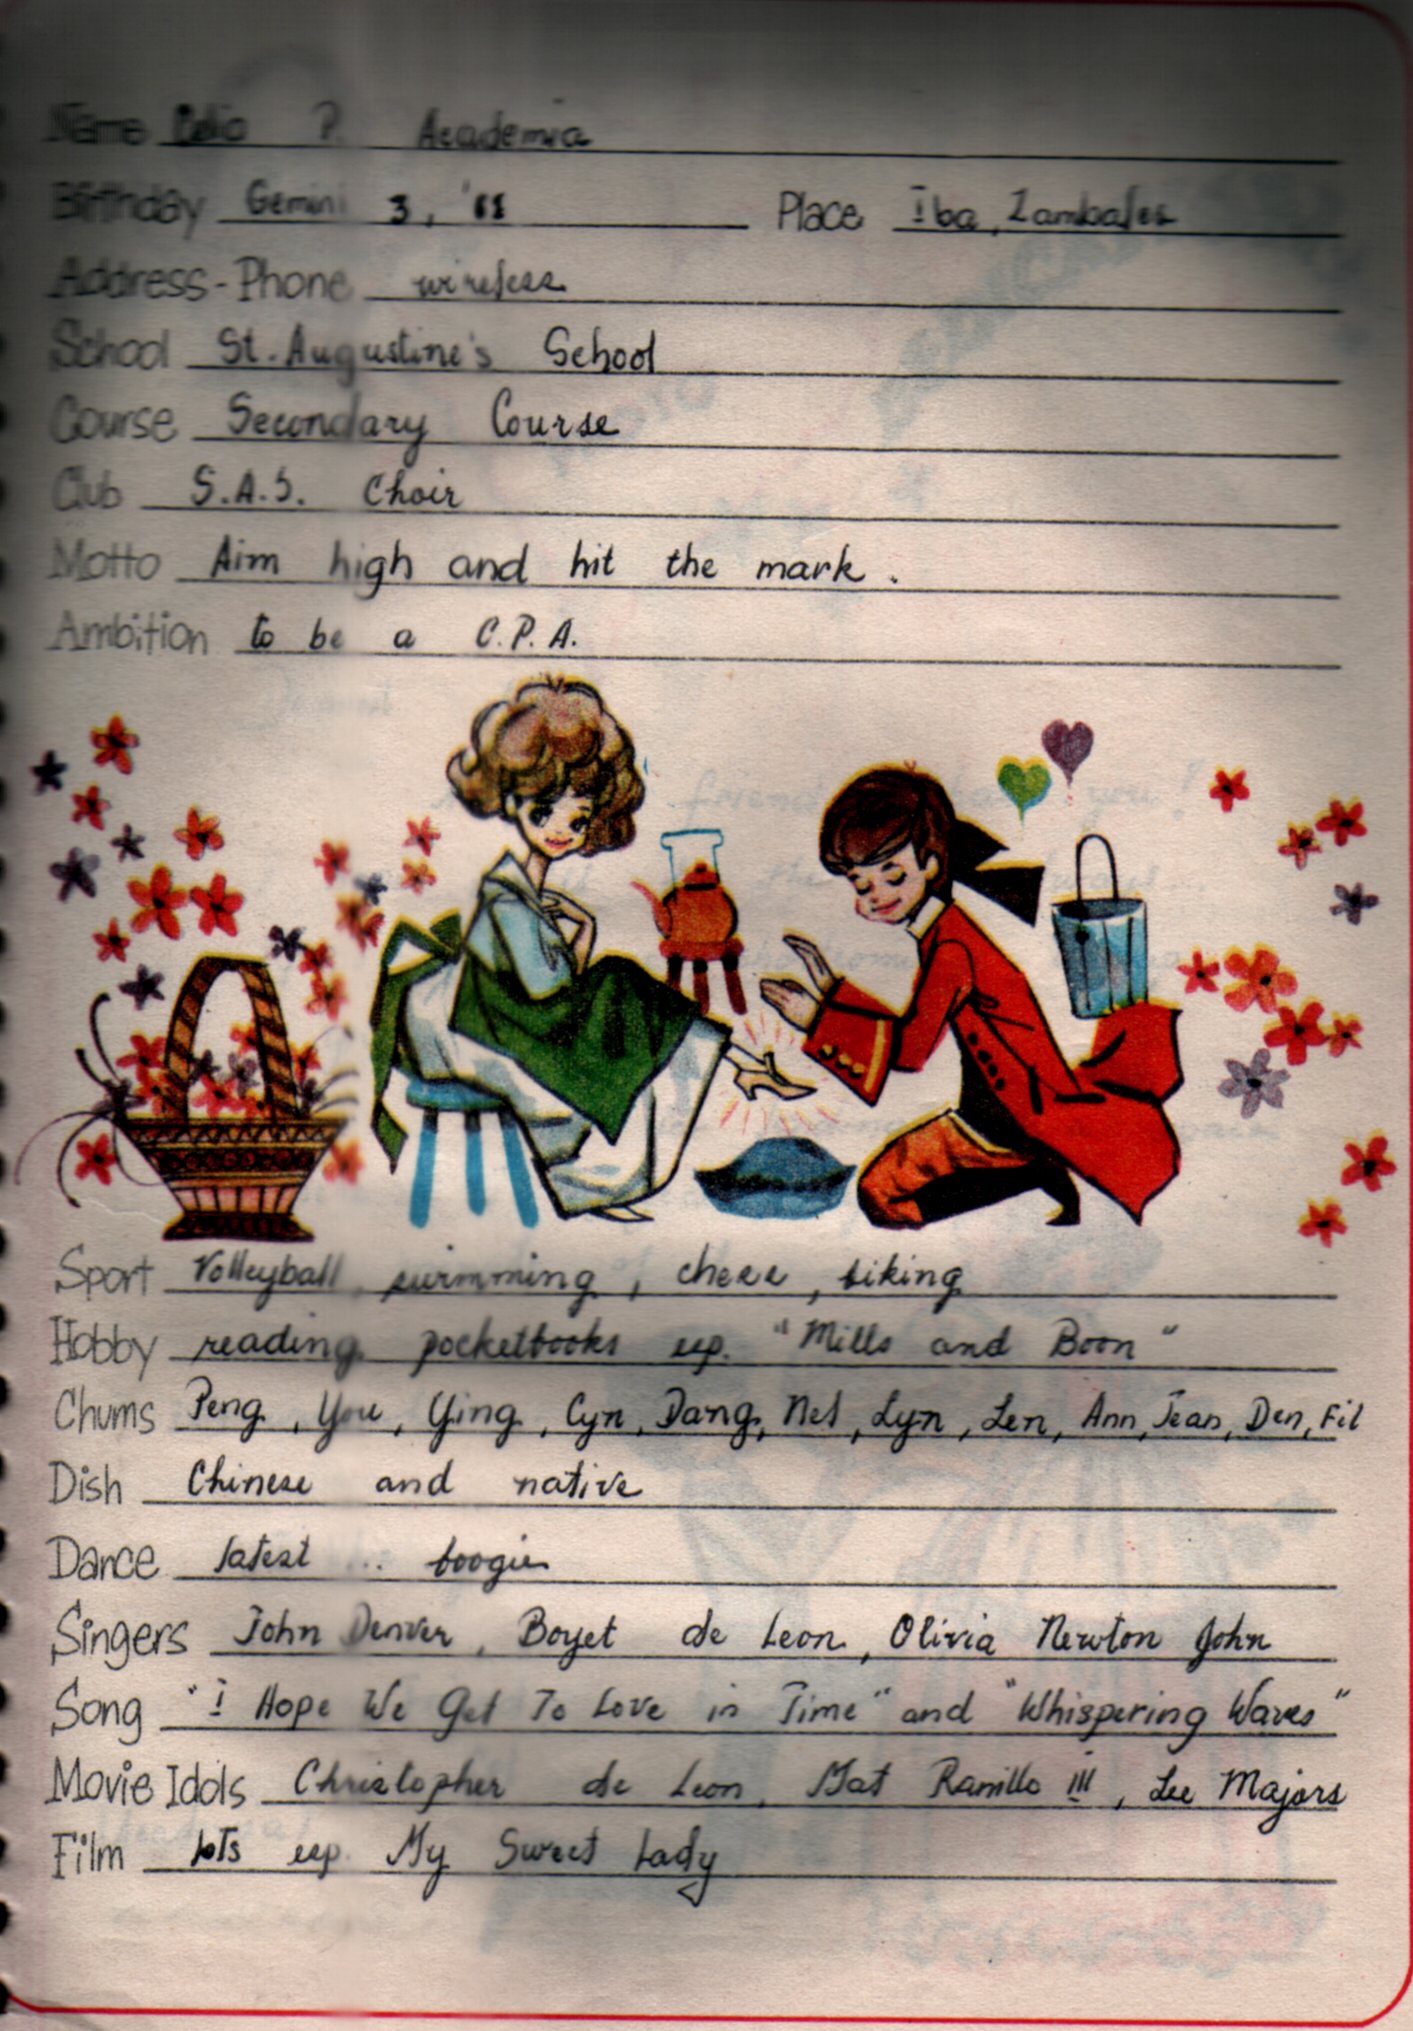 Name P. Academia
Birthday Gemini 3, '61 Place Iba, Zambales
Address-Phone wireless
School St. Augustine's School
Course Secondary Course
Club S.A.S. Choir
Motto Aim high and hit the mark.
Ambition to be a C.P.A.
Sport Volleyball, swimming, chess, hiking
Hobby reading pocketbooks esp. "Mills and Boon"
Chums Peng, You, Ying, Cyn, Dang, Nel, Lyn, Len, Ann, Jean, Den, Fil
Dish Chinese and native
Dance latest ... boogie
Singers John Denver, Boyet de Leon, Olivia Newton John
Song "I Hope We Get To Love in Time" and "Whispering Waves"
Movie Idols Christopher de Leon, Mat Ranillo III, Lee Majors
Film lots esp. My Sweet Lady